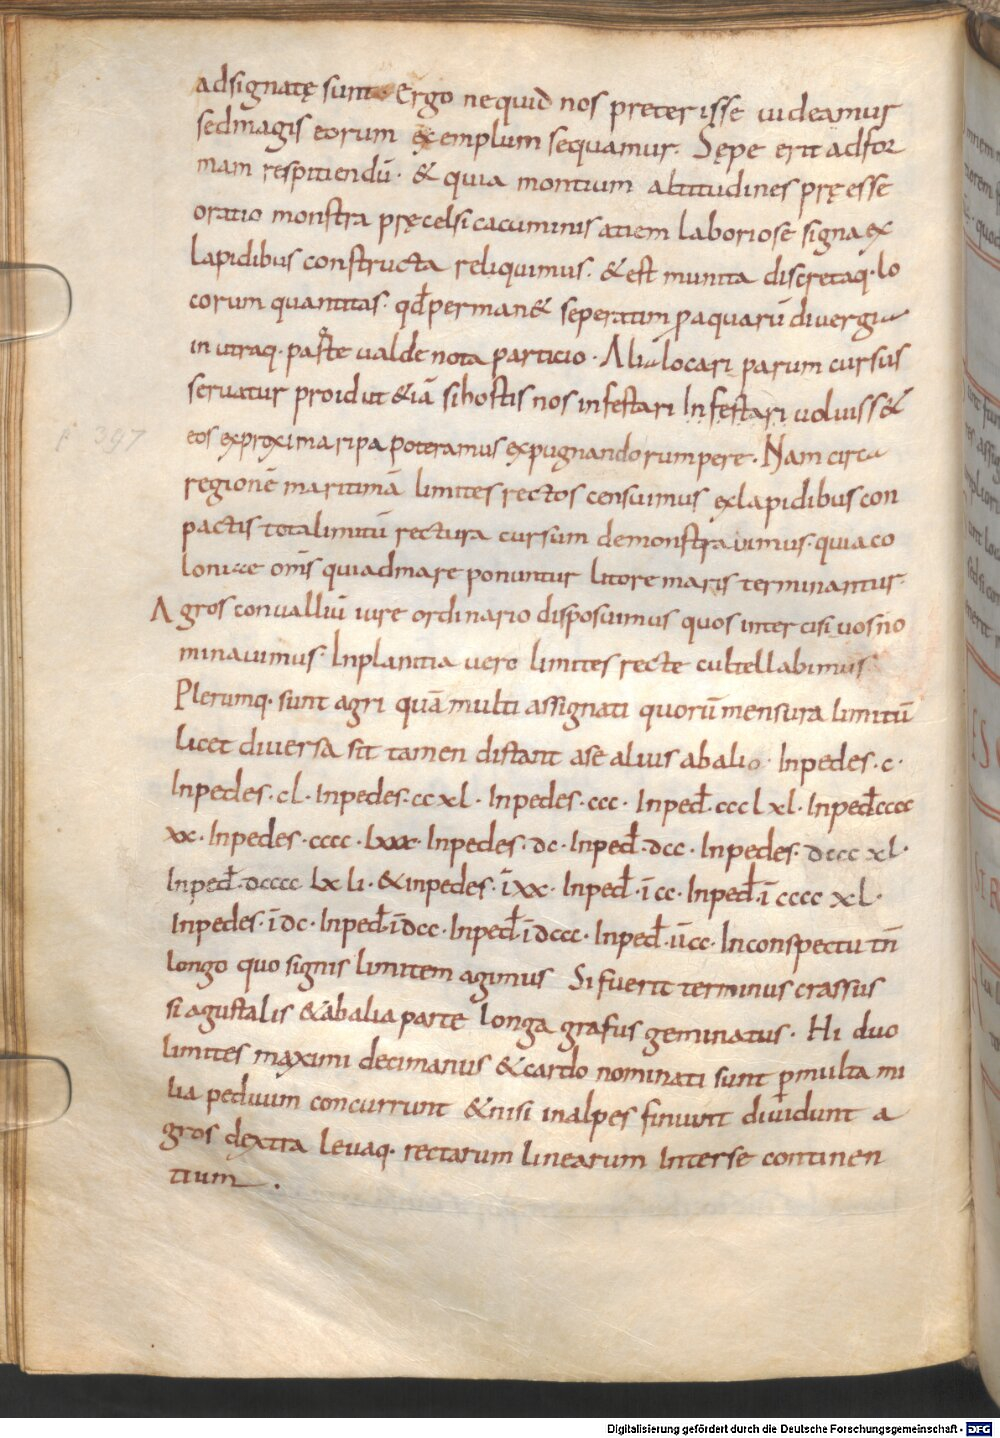 adsignatę sunt. Ergo nequid nos preterisse uideamus
sedmagis eorum exemplum sequamur. Sępe erit adfor
mam respitiendū. & quia montium altitudines pręesse
oratio monstra pręcelsi cacuminis atiem laboriose signa ex
lapidibus constructa reliquimus. & est munita discretaq. lo
corum quantitas. qđ perman& seperatim paquarū divergia
in utraq. parte valde nota particio. Alia locari parum cursus
servatur proid ut &iā si hostis nos infestari Infestari voluiss&
eos exproxima ripa poteramus expugnando rumpere. Nam circa
regionē maritimā limites rectos censuimus exlapidibus con
pactis totalimitū rectura cursum demonstravimus. quia co
loniae om̄s quiadmare ponuntur litore maris terminantur.
Agros convalliū iure ordinario disposuimus quos intercisivos no
minavimus. Inplanitia vero limites recte cultellabimus.
Plerumq. sunt agri quā multi assignati quorū mensura limitū
licet diversa sit tamen distant ase alius abalio. Inpedes. c.
Inpedes. cl. Inpedes. ccxl. Inpedes. ccc. Inped̄. ccclxl. Inped̄ cccc
xx. Inpedes. cccc. lxxx. Inpedes. dc. Inped̄. dcc. Inpedes. dccc xl.
Inped̄. dcccc lx li. & inpedes. īxx. Inped̄. ī cc. Inped̄. ī cccc xl.
Inpedes. īdc. Inped̄. īdcc. Inped̄. īdccc. Inped̄. v̄cc. Inconspectu tn̄
longo quo signis limitem agimus Si fuerit terminus crassus
si agustalis & abalia parte longa grafus geminatus. Hi duo
limites maximi decimanus & cardo nominati sunt p̱ multa mi
lia peduum concurrunt & nisi inalpes finiunt dividunt a
gros dextra levaq. rectarum linearum Interse continen
tium.
p 397
Digitalisierung gefördert durch die Deutsche Forschungsgemeinschaft - DFG